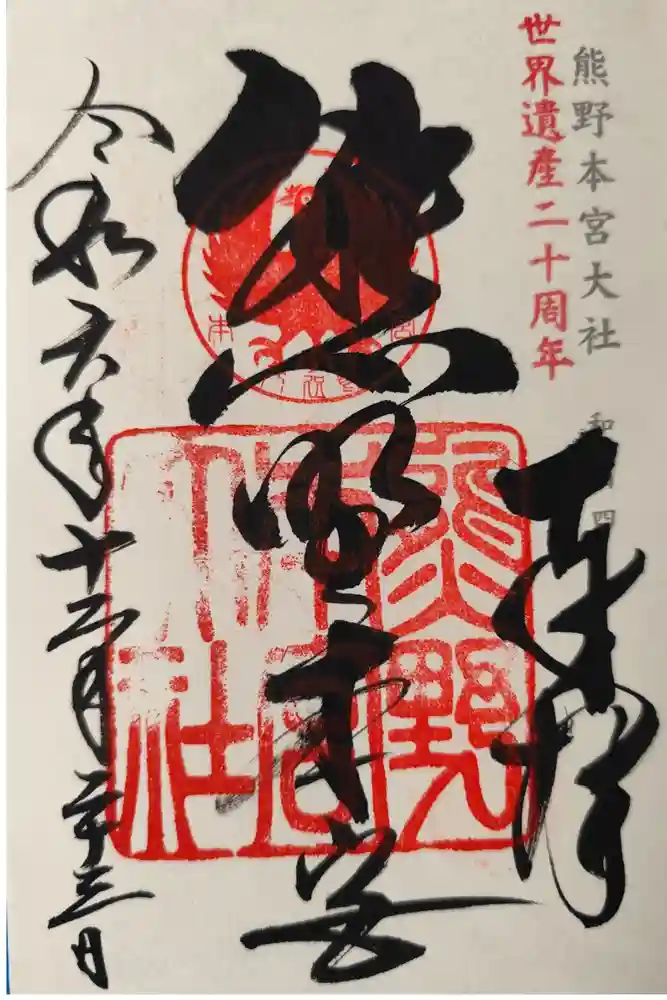 熊野本宮大社
世界遺産二十周年
奉拝
熊野本宮
熊野本宮大社
令和六年十二月二十三日